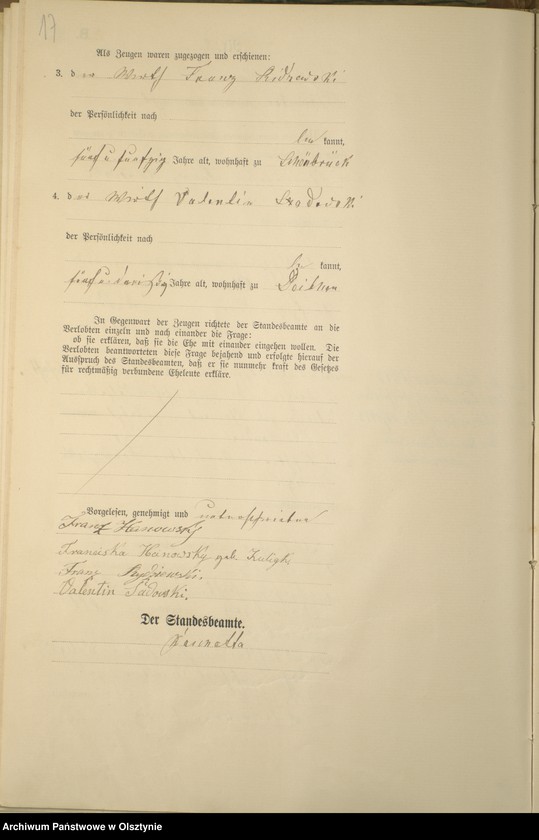 17
Als Zeugen waren zugezogen und erschienen:
3. der Wirth Franz
der Persönlichkeit nach
be kannt,
fünf u fünfzig Jahre alt, wohnhaft zu Schönbrück
4. der Wirth Valentin
der Persönlichkeit nach
be kannt,
fünf u dreißig Jahre alt, wohnhaft zu
In Gegenwart der Zeugen richtete der Standesbeamte an die
Verlobten einzeln und nach einander die Frage:
ob sie erklären, daß sie die Ehe mit einander eingehen wollen. Die
Verlobten beantworteten diese Frage bejahend und erfolgte hierauf der
Ausspruch des Standesbeamten, daß er sie nunmehr kraft des Gesetzes
für rechtmäßig verbundene Eheleute erkläre.
Vorgelesen, genehmigt und unterschrieben
Franz Hanowsky
Franciska Hanowsky geb.
Franz
Valentin Sadowski.
Der Standesbeamte.
Archiwum Państwowe w Olsztynie